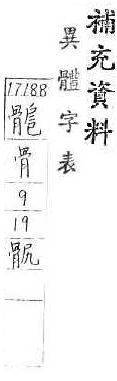 補充資料
異體字表
17188
骨
9
19